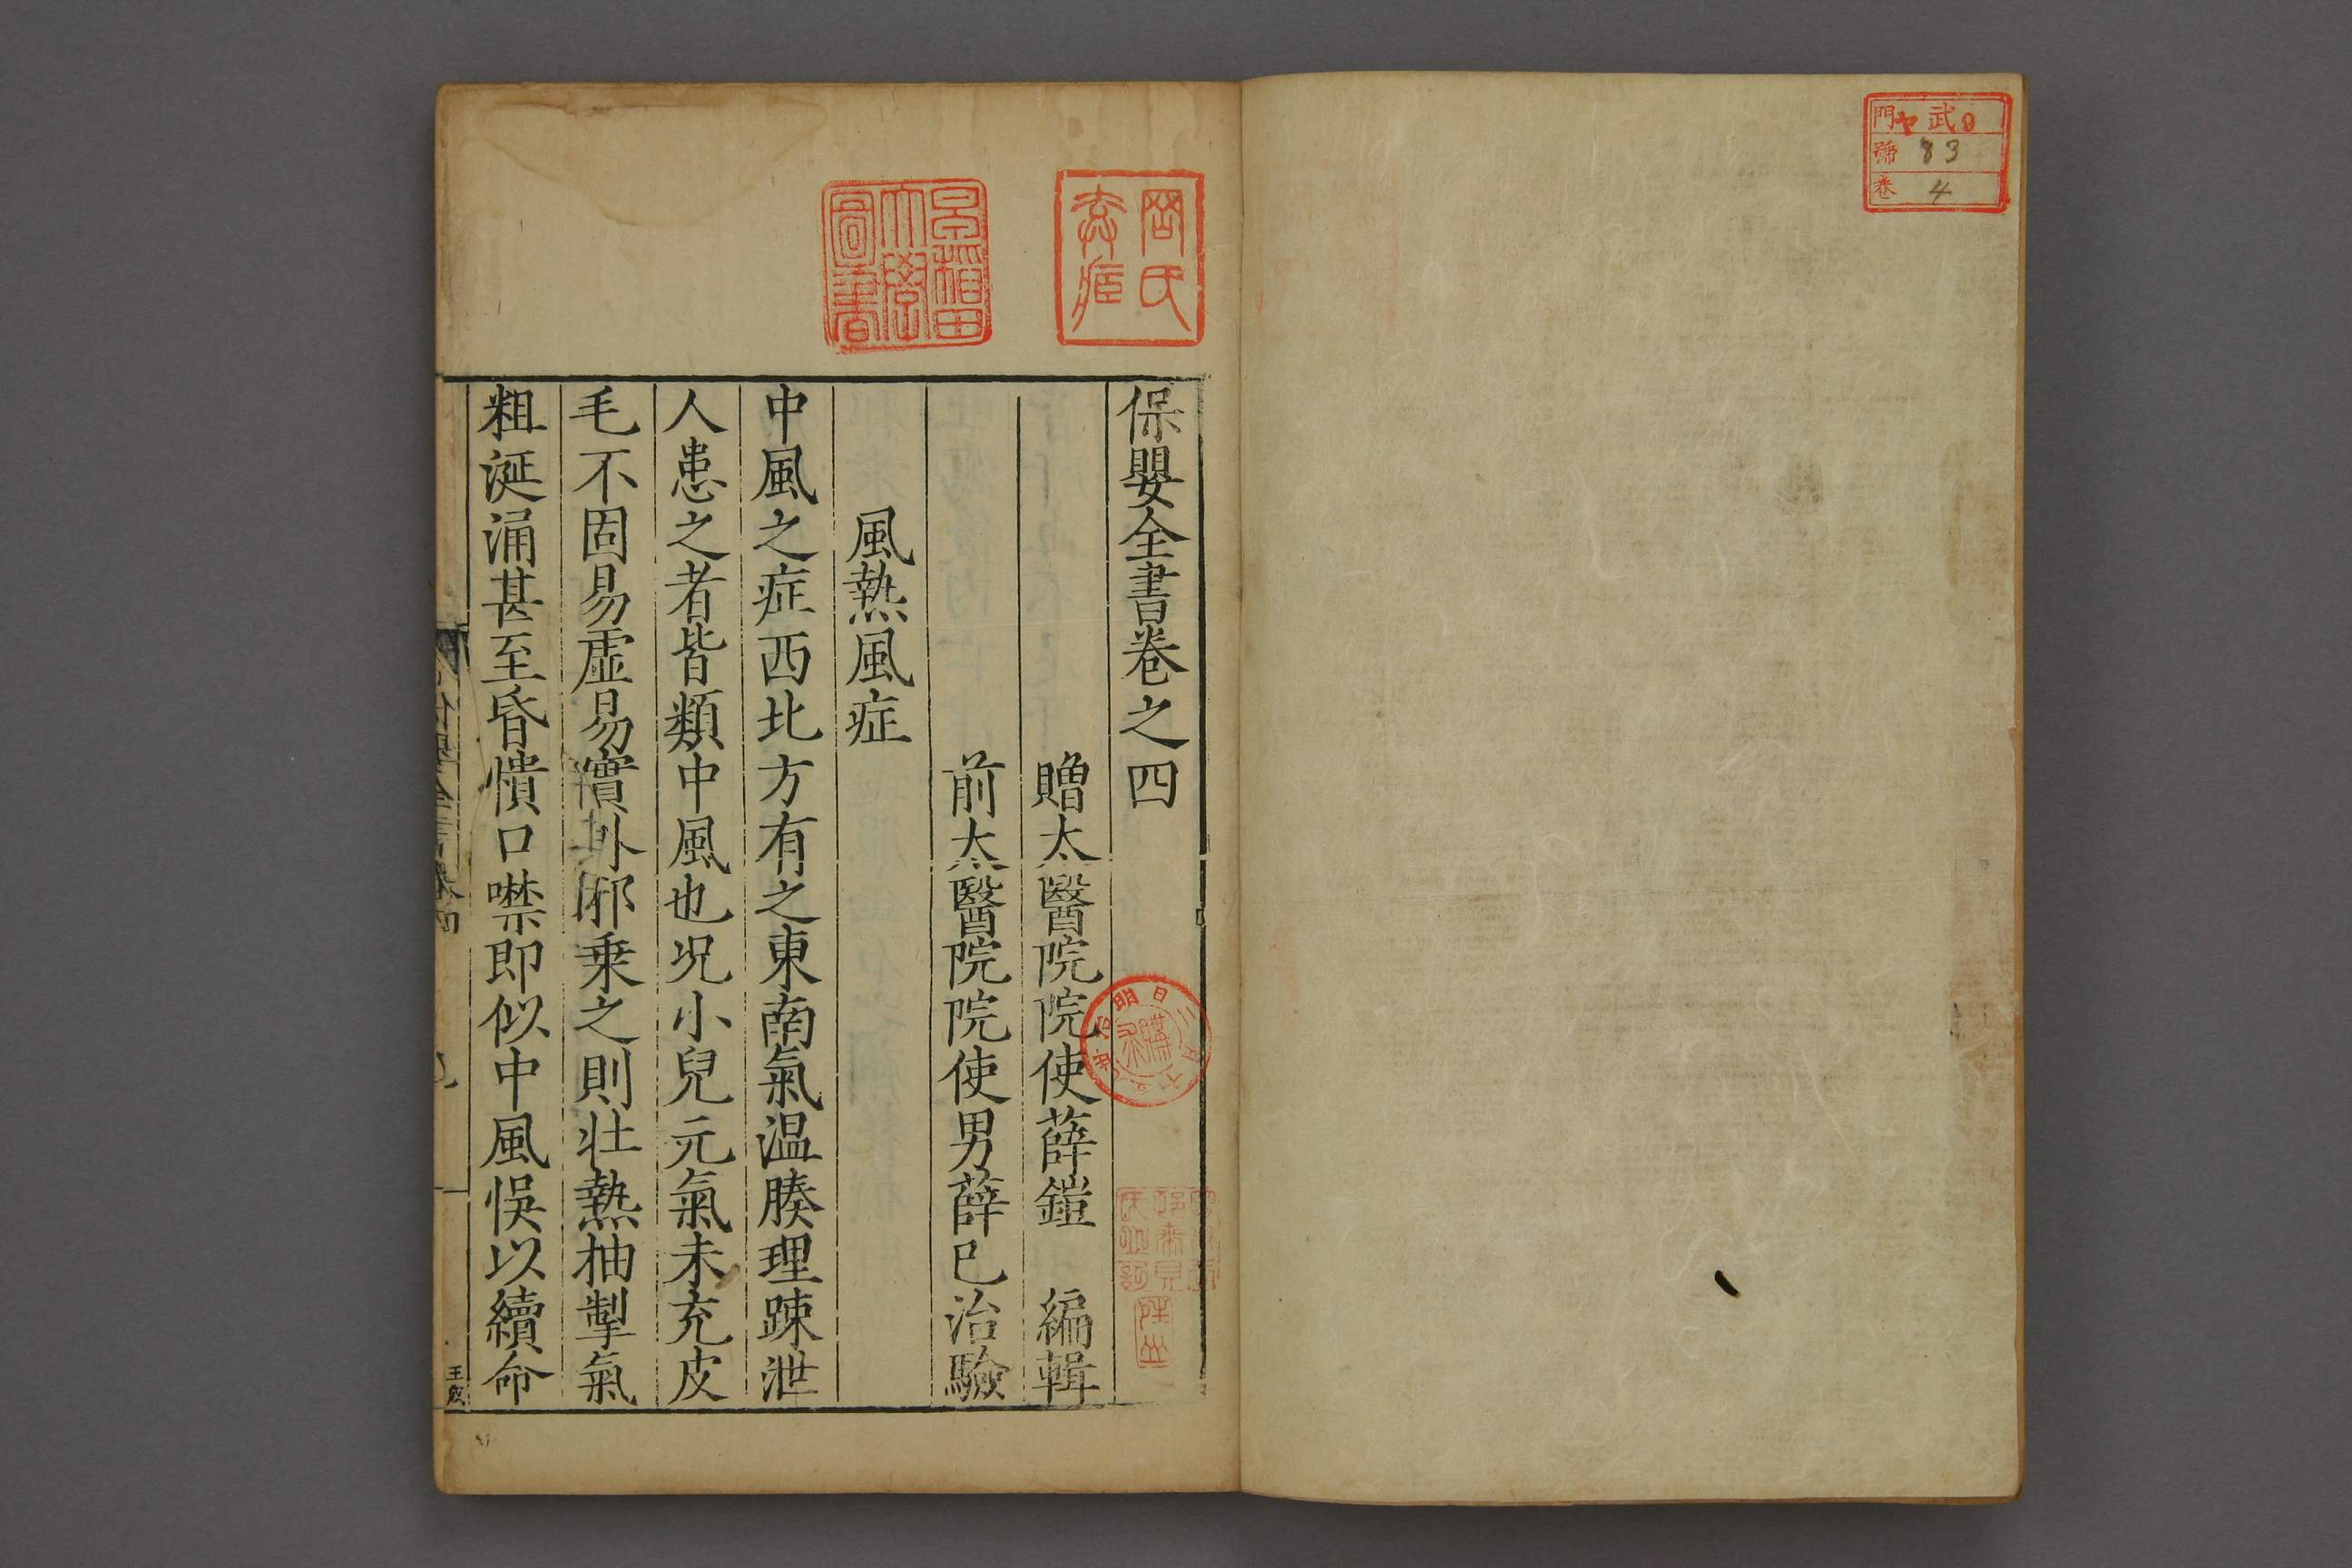 門ヤ 武9
號 83
卷 4
早稲田大學圖書
保嬰全書卷之四
贈太醫院院使薛鎧 編輯
前太醫院院使男薛已治驗
風熱風症
中風之症西北方有之東南氣温腠理踈泄
人患之者皆類中風也况小兒元氣未充皮
毛不固易虚易實外邪乗之則壮熱抽掣氣
粗涎涌甚至昏憒口噤即似中風悮以續命